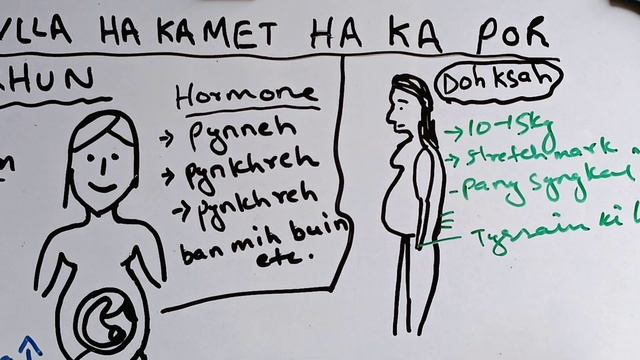 HA KA MET HA KA POR
Hormone
→ pynneh
→ pynkhreh
→ pynkhreh
ban mih buin
etc.
Doh ksah
→ 10-15kg
→ stretch mark
- pang syngkai
Tyrsain ki